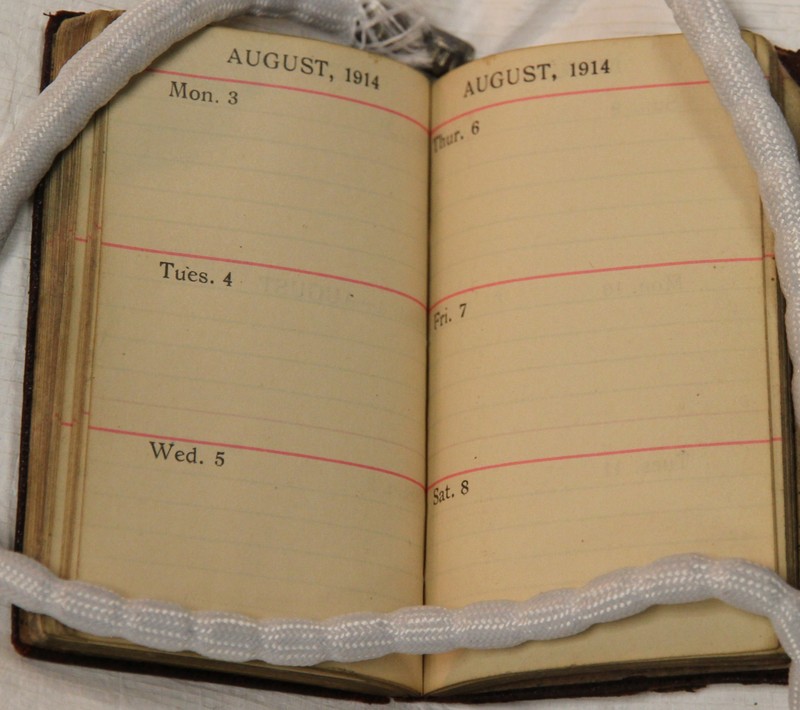 AUGUST, 1914
Mon. 3
Tues. 4
Wed. 5
AUGUST, 1914
Thur. 6
Fri. 7
Sat. 8